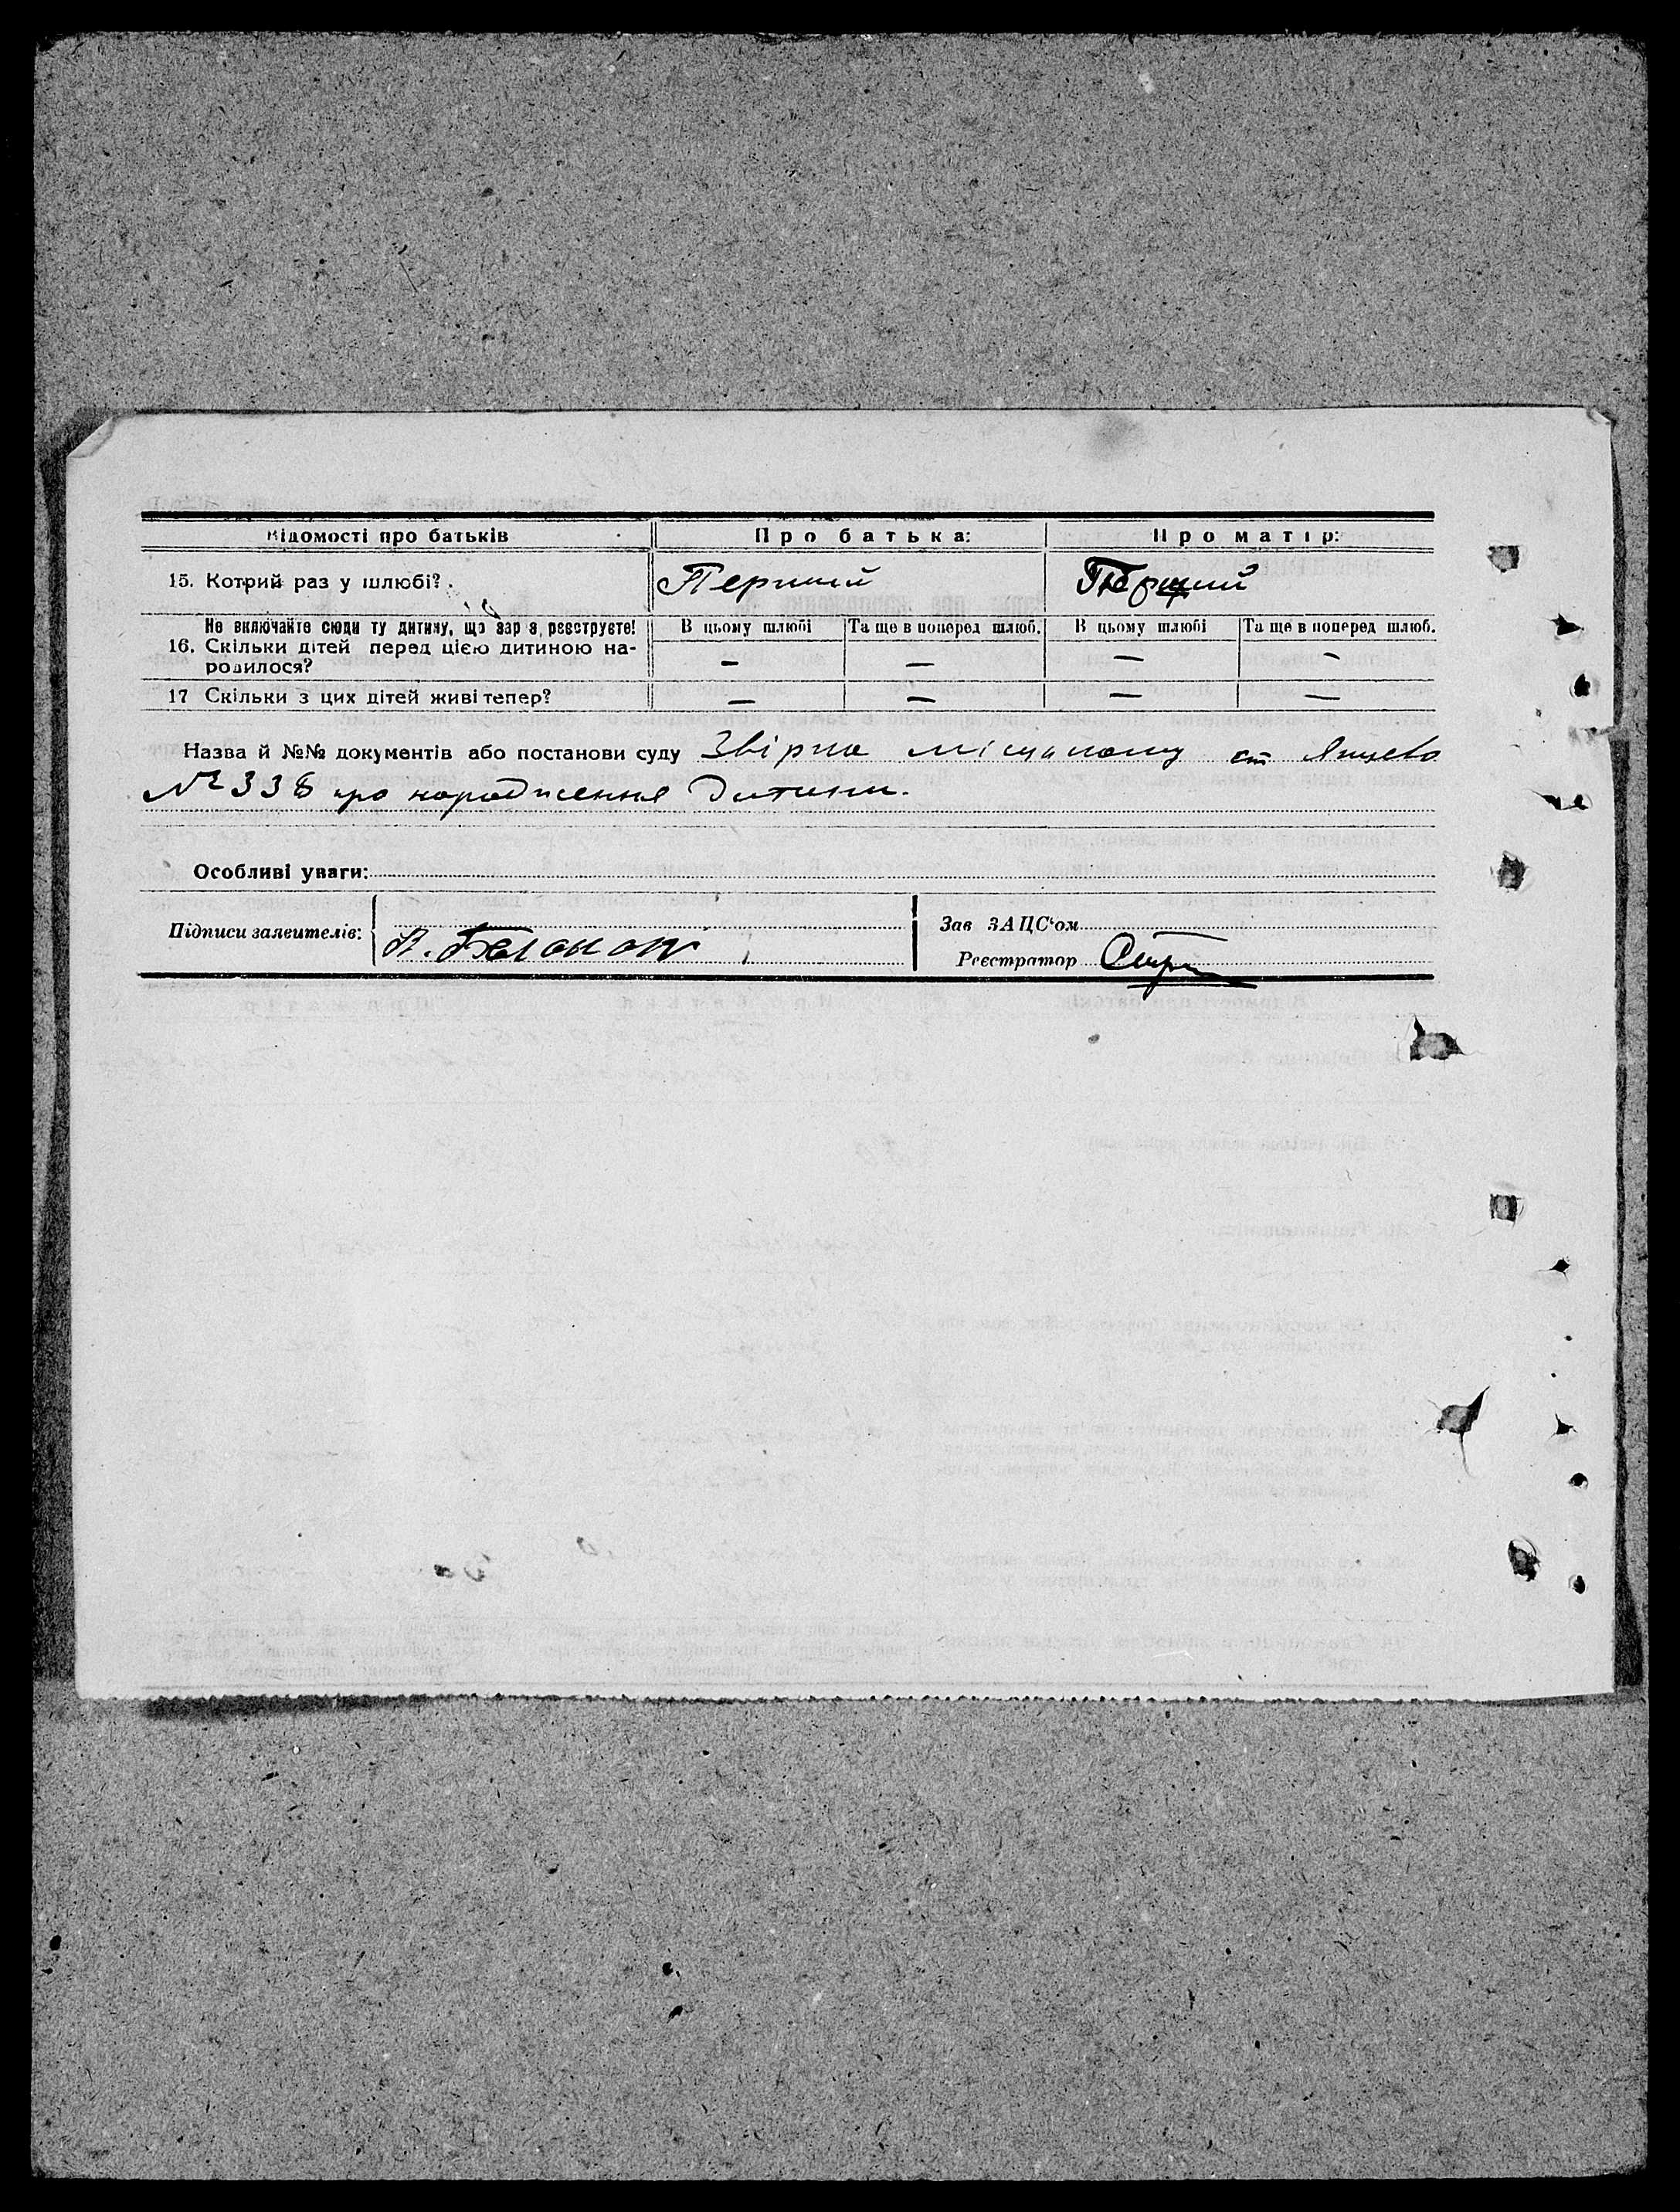 Відомості про батьків Про батька: Про матір:
15. Котрий раз у шлюбі? Перший Перший
Не включайте сюди ту дитину, що зар з, реєструєте! В цьому шлюбі Та ще в поперед шлюб. В цьому шлюбі Та ще в поперед шлюб.
16. Скільки дітей перед цією дитиною на-
родилося? — — — —
17 Скільки з цих дітей живі тепер? — — — —
Назва й №№ документів або постанови суду ст
№ 338 про народження дитини.
Особливі уваги:
Підписи заявителів:
Зав ЗАЦС'ом
Реєстратор